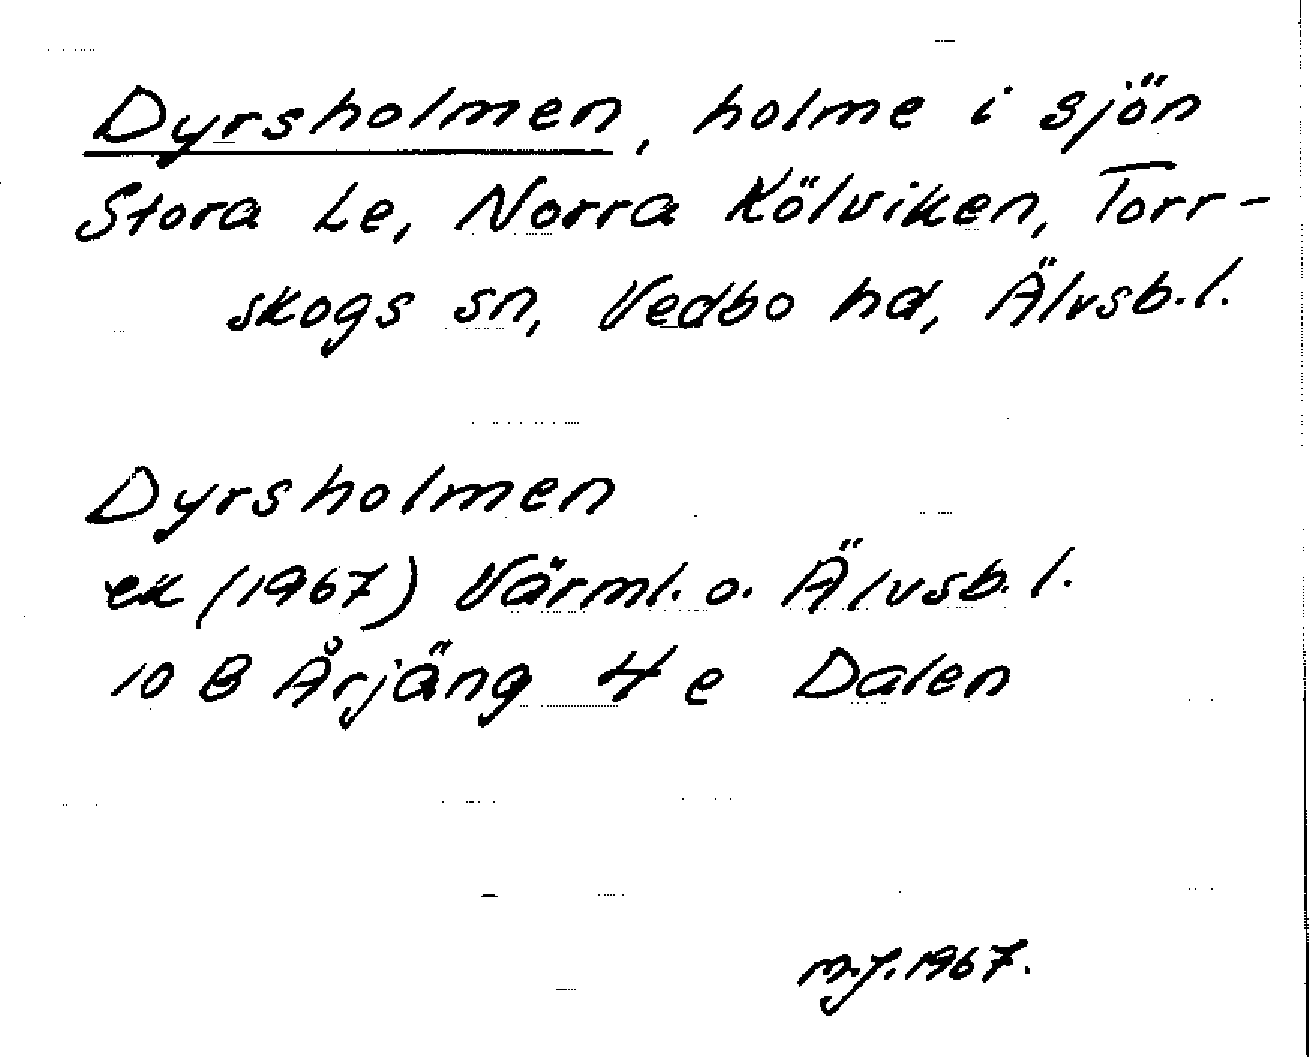 Dyrsholmen, holme i sjön
Stora Le, Norra Kölviken, Torr-
skogs sn, Vedbo hd, Älvsb.l.
Dyrsholmen
ek (1967) Värml. o. Älvsb. l.
10 B Årjäng 4 e Dalen
m.j. 1967.